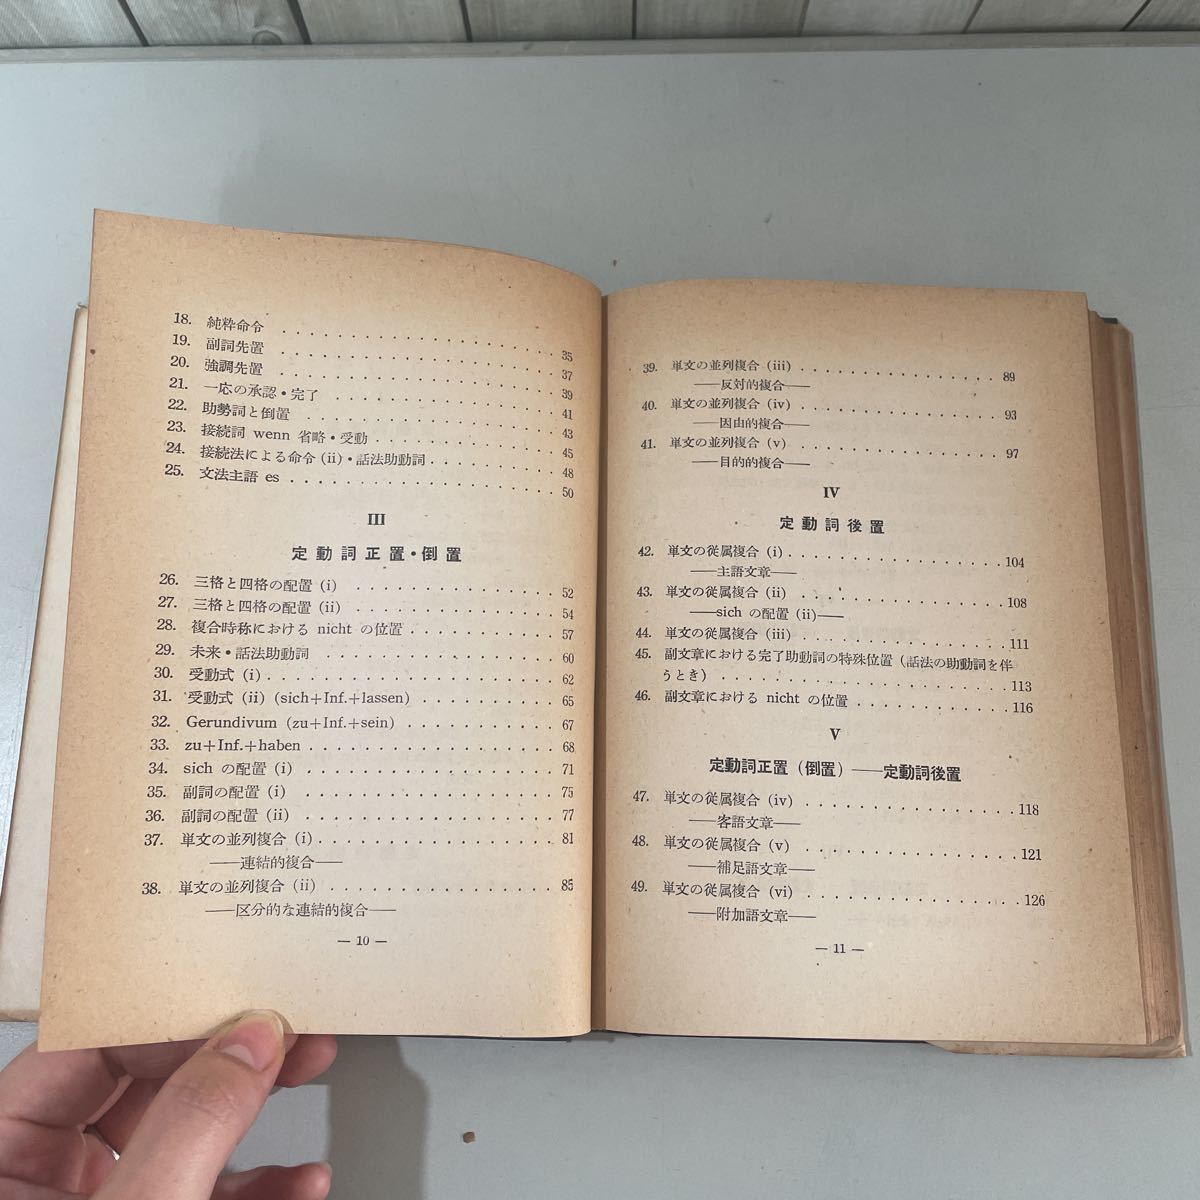 18. 純粋命令 . . . . . . . . . . 35
19. 副詞先置 . . . . . . . . . . 37
20. 強調先置 . . . . . . . . . . 39
21. 一応の承認・完了 . . . . . . . . . . 41
22. 助勢詞と倒置 . . . . . . . . . . 43
23. 接続詞 wenn 省略・受動 . . . . . . . . . . 45
24. 接続法による命令 (ii)・話法助動詞 . . . . . . . . . . 48
25. 文法主語 es . . . . . . . . . . 50
III
定動詞正置・倒置
26. 三格と四格の配置 (i) . . . . . . . . . . 52
27. 三格と四格の配置 (ii) . . . . . . . . . . 54
28. 複合時称における nicht の位置 . . . . . . . . . . 57
29. 未来・話法助動詞 . . . . . . . . . . 60
30. 受動式 (i) . . . . . . . . . . 62
31. 受動式 (ii) (sich+Inf.+lassen) . . . . . . . . . . 65
32. Gerundivum (zu+Inf.+sein) . . . . . . . . . . 67
33. zu+Inf.+haben . . . . . . . . . . 68
34. sich の配置 (i) . . . . . . . . . . 71
35. 副詞の配置 (i) . . . . . . . . . . 75
36. 副詞の配置 (ii) . . . . . . . . . . 77
37. 単文の並列複合 (i) . . . . . . . . . . 81
——連結的複合——
38. 単文の並列複合 (ii) . . . . . . . . . . 85
——区分的な連結的複合——
— 10 —
39. 単文の並列複合 (iii) . . . . . . . . . . 89
——反対的複合——
40. 単文の並列複合 (iv) . . . . . . . . . . 93
——因由的複合——
41. 単文の並列複合 (v) . . . . . . . . . . 97
——目的的複合——
IV
定動詞後置
42. 単文の従属複合 (i) . . . . . . . . . . 104
——主語文章——
43. 単文の従属複合 (ii) . . . . . . . . . . 108
——sich の配置 (ii)——
44. 単文の従属複合 (iii) . . . . . . . . . . 111
45. 副文章における完了助動詞の特殊位置（話法の助動詞を伴
うとき） . . . . . . . . . . 113
46. 副文章における nicht の位置 . . . . . . . . . . 116
V
定動詞正置（倒置）——定動詞後置
47. 単文の従属複合 (iv) . . . . . . . . . . 118
——客語文章——
48. 単文の従属複合 (v) . . . . . . . . . . 121
——補足語文章——
49. 単文の従属複合 (vi) . . . . . . . . . . 126
——附加語文章——
— 11 —